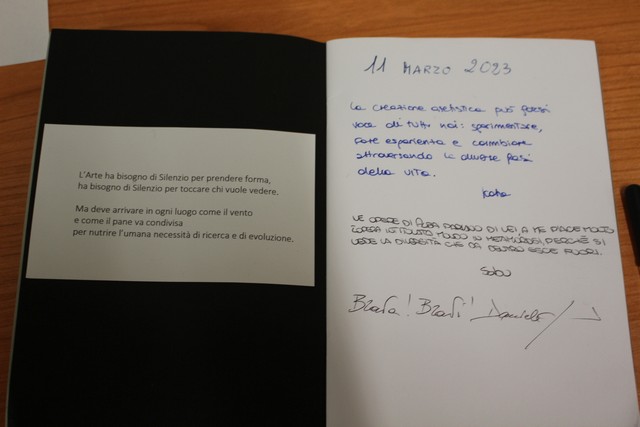 L'Arte ha bisogno di Silenzio per prendere forma,
ha bisogno di Silenzio per toccare chi vuole vedere.
Ma deve arrivare in ogni luogo come il vento
e come il pane va condivisa
per nutrire l'umana necessità di ricerca e di evoluzione.
11 MARZO 2023
La creazione artistica può farsi
voce di tutti noi: sperimentare,
fare esperienza e cambiare
attraversando le diverse fasi
della vita.
LE OPERE DI PARLANO DI LEI, A ME PIACE MOLTO
L'OPERA INTITOLATA MONDO IN METAMORFOSI, PERCHÈ SI
VEDE LA DIVERSITÀ CHE DA DENTRO ESCE FUORI.
Brava! Bravi! Daniela